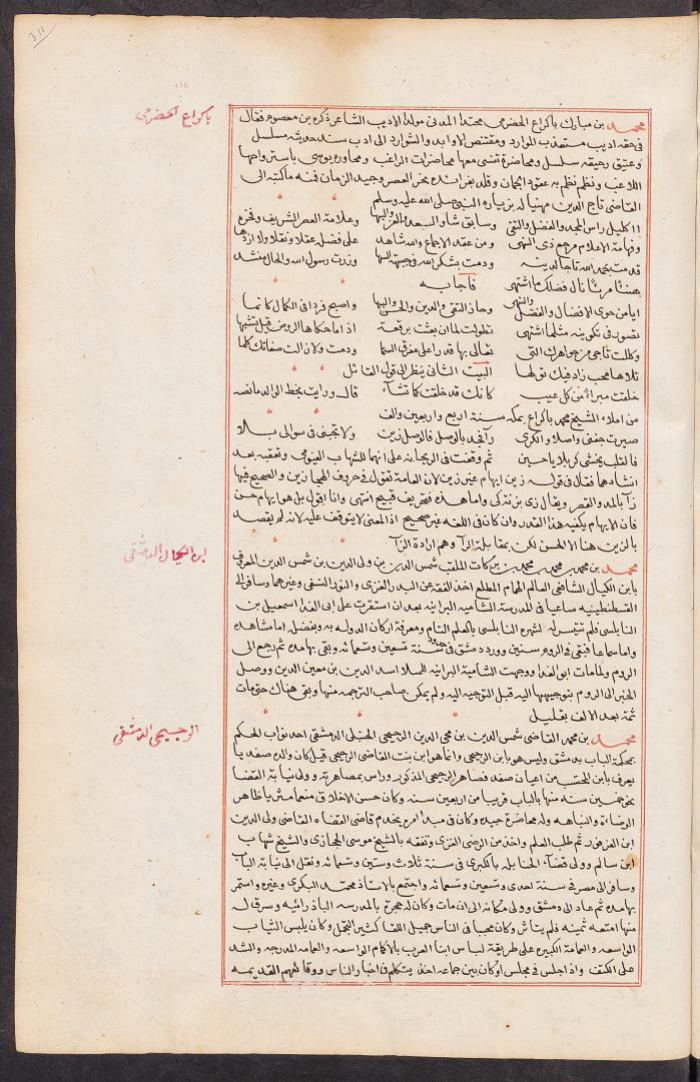 311
باكراع الحضرمي
محمد بن مبارك باكراع الحضرمي محتدا المدني مولدا الاديب الشاعر ذكره بن معصوم فقال
في حقه اديب مستعذب الموارد ومقتنص الاوابد والشوارد الى ادب سند حديثه مسلسل
وعتيق رحيقه سلسل ومحاضرة تنسى معها محاضرات الراغب ومحاوره يومي باستر واجها
اللاعب ونظم نظم به عقود الجمان وقلد بفرائده نحر العصر وجيد الزمان فمنه ماكتبه الى
القاضي تاج الدين مهنيا له بزياره النبي صلى الله عليه وسلم
اا كليل راس المجد والفضل والتقى وسابق شاو السعد والعز واليها وعلامة العصر الشريف وفخره
وفهامة الاعلام مرجع ذي النهى ومن عقد الاجماع والله شاهد على فضله عقلا ونقلا ولا ازدها
قدمت بحمد الله تاجا لدينه ودمت بشكر الله في جبهة السها وزرت رسول الله والحال منشد
هنئا مرئا نال فضلك ما اشتهى فاجابه
ايا من حوى الافضال والفضل والنهى وحاز التقى والدين والحسن والبها واصبح فردا في الكمال كانما
تصور في تكوينه مثلما اشتهى تطولت لما ان بعثت برقعة اذا ما حكاها الروض قيل تشبها
وكللت تاجي من جواهرك التي تعالى بها قدرا على مفرق السها ودمت ولا زالت صفاتك كلما
تلاها محب زاد فيك تولها البيت الثاني ينظر الى قول القائل
خلقت مبراء من كل عيب كانك قد خلقت كما تشاء قال ورايت بخط الوالد مانصه
من املاء الشيخ محمد باكراع بمكه سنة اربع واربعين والف
صيرت جفني واصلا والكرى راء فجد بالوصل فالوصل زين ولا تجبني في سوالي بلا
فالقلب يخشى كربلا ياحسين ثم وقفت في الريحانه على انهما للشهاب الفيومي وتعقبه بعد
انشادها فقال في قوله زين ايهام غير زين لان العامة تقول في حروف الهجا زين والصحيح فيها
زاء بالمد والقصر ويقال زي بن نة كي واما هذه فتحريف قبيح انتهى وانا اقول بل هو ايهام حسن
فان الايهام يكفيه هذا القدر وان كان في اللغه غير صحيح اذ المعنى لا يتوقف عليه لانه لم يقصد
بالزين هنا الا الحسن لكن بمقابلة الراء وهم ارادة الزاء
ابن الكيال الدمشقي
محمد بن محمد بن محمد بن محمد بن بركات الملقب شمس الدين بن ولي الدين بن شمس الدين المعروف
بابن الكيال الشافعي العالم الهمام المطلع اخذ الفقه عن البدر الغزي والنور النسفي وغيرهما وسافر الى
القسطنطينيه ساعيا في المدرسة الشاميه البرانيه بعد ان استقرت على ابي الفدا اسمعيل بن
النابلسي فلم تتيسر له لشهره النابلسي بالعلم التام ومعرفة اركان الدوله به وبفضله اما مشاهده
واما سماعا فبقي في الروم سنين وورد دمشق في حدود سنة تسعين وتسعمائه وبقي بها مده ثم رجع الى
الروم ولما مات ابو الفدا ووجهت الشامية البرانيه للمنلا اسد الدين بن معين الدين ووصل
الخبر الى الروم بتوجيهها اليه قبل التوجيه اليه ولم يمكن صاحب الترجمه منها وبقي هناك حتى مات
ثمة بعد الالف بقليل
الوجيحي الدمشقي
محمد بن محمد القاضي شمس الدين بن محي الدين الرجيحي الحنبلي الدمشقي احد نواب الحكم
بمحكمة الباب بدمشق وليس هو بابن الرجيحي وانما هو ابن بنت القاضي الرجيحي قيل كان والده صفديا
يعرف بابن المحتسب من اعيان صفد فصاهر الرجيحي المذكور وراس بمصاهرته وولي نيابة القضا
نحو خمسين سنه منها بالباب قريبا من اربعين سنه وكان حسن الاخلاق منعما مترياظاهر
الوضاءة والنباهه وله محاضرة جيده وكان في مبدا امره يخدم قاضي القضاه القاضي ولي الدين
ابن الفرفور ثم طلب العلم واخذ من الرضي الغزي وتفقه بالشيخ موسى الحجازي والشيخ شهاب
ابن سالم وولي قضاء الحنابله بالكبرى في سنة ثلاث وستين وتسعمائه ونقل الى نيابة الباب
وسافر الى مصر في سنة احدى وتسعين وتسعمائه واجتمع بالاستاذ محمد البكري وغيره واستمر
بها مده ثم عاد الى دمشق وولي مكانه الى ان مات وكان له حجرة بالمدرسه الباذرائيه وسرق له
منها امتعه ثمينه فلم يتاثر وكان محببا في الناس جميل اللقا كثير التجمل وكان يلبس الثياب
الواسعه والعمامة الكبيره على طريقة لباس ابنا العرب بالاكمام الواسعه والعمامه المدرجه والشد
على الكتف واذا جلس في مجلس او كان بين جماعه اخذ يتكلم في اخبار الناس ووقائعهم القديمه